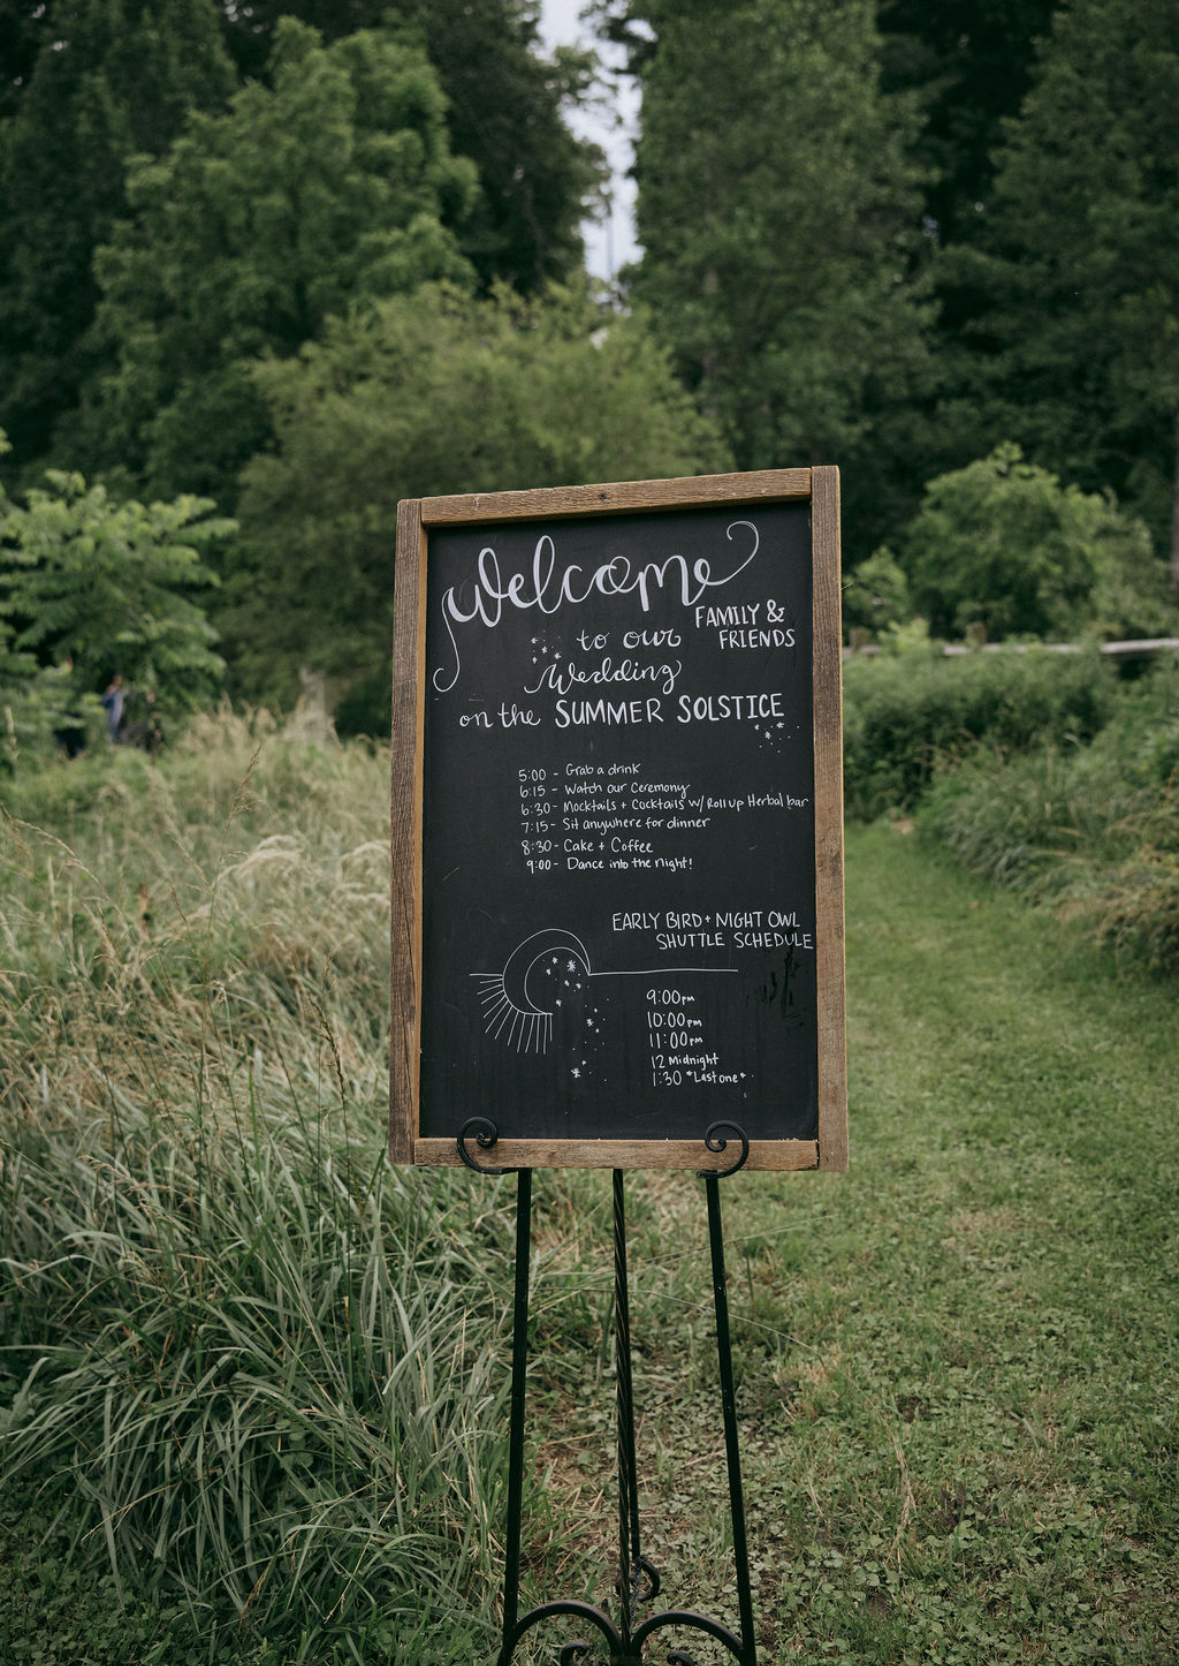 Welcome
FAMILY &
FRIENDS
to our
Wedding
on the SUMMER SOLSTICE
5:00 - Grab a drink
6:15 - Watch our Ceremony
6:30 - Mocktails + Cocktails w/ Roll up Herbal bar
7:15 - Sit anywhere for dinner
8:30 - Cake + Coffee
9:00 - Dance into the night!
EARLY BIRD + NIGHT OWL
SHUTTLE SCHEDULE
9:00pm
10:00pm
11:00pm
12 Midnight
1:30 *Last one*